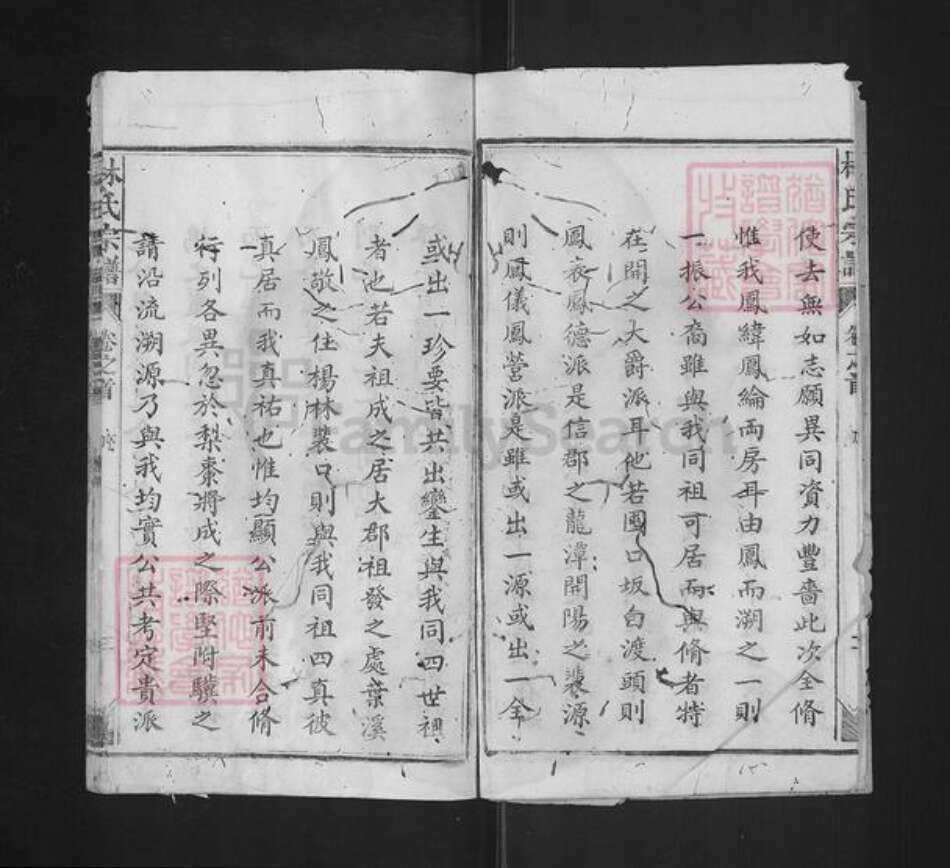 林氏宗譜 卷之首
使去無如志願異同資力豐嗇此次全脩
惟我鳳緯鳳綸両房耳由鳳而溯之一則
一振公裔雖與我同祖可居而與脩者特
在開之大爵派耳他若國口坂白渡頭則
鳳衣鳳德派是信郡之龍潭開陽之裴源
則鳳儀鳳營派是雖或出一源或出一全
或出一珍要皆共出鑾生與我同四世祖
者也若夫祖成之居大郡祖發之處葉溪
鳳敬之住楊林裴口則與我同祖四真彼
真居而我真祐也惟均顯公派前未合脩
行列各異忽於梨棗將成之際堅附驥之
請沿流溯源乃與我均實公共考定貴派
林氏宗譜 卷之首
FamilySearch